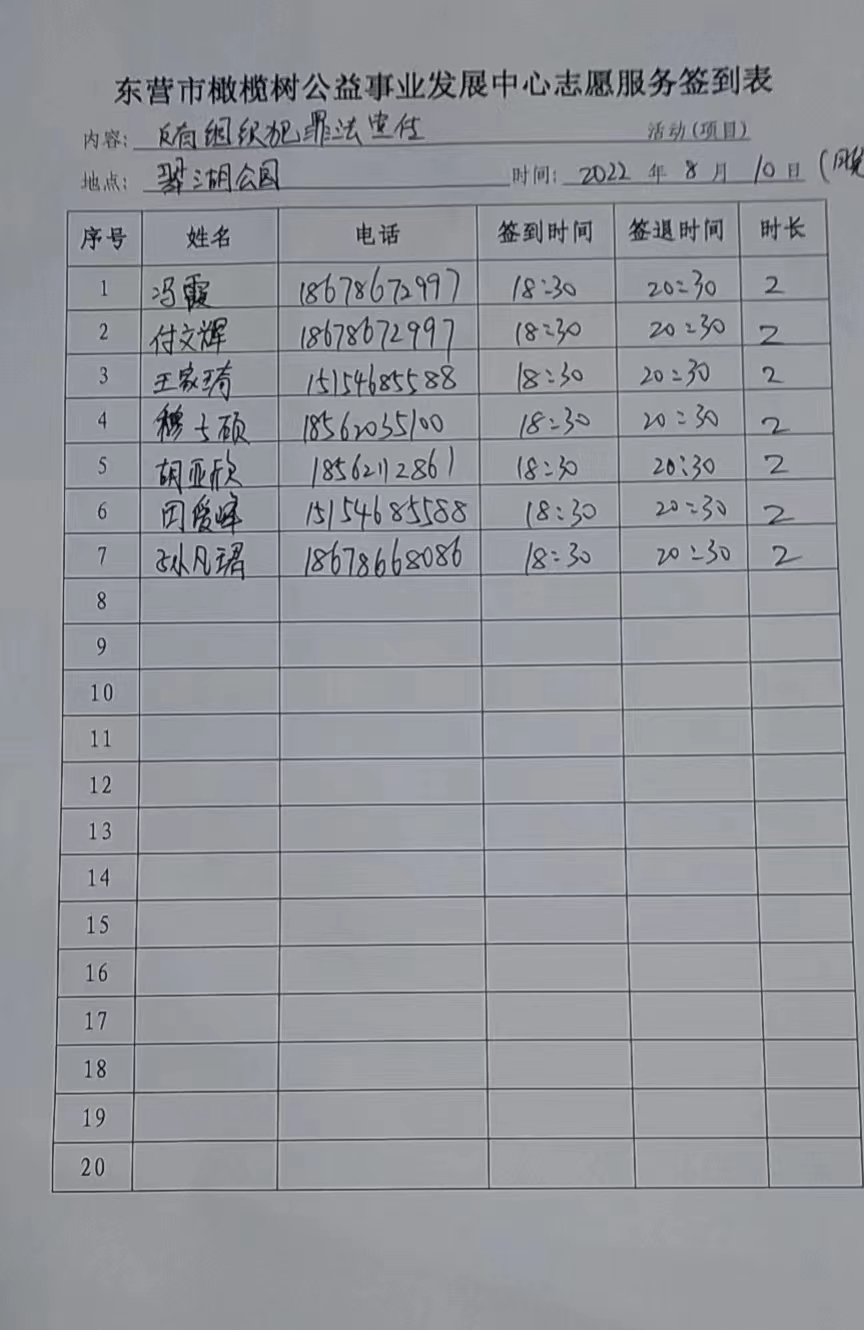 东营市橄榄树公益事业发展中心志愿服务签到表
内容: 反有组织犯罪法宣传 活动(项目)
地点: 翠湖公园 时间: 2022 年 8 月 10 日 (晚
序号 姓名 电话 签到时间 签退时间 时长
1 冯霞 18678672997 18:30 20:30 2
2 付文辉 18678672997 18:30 20:30 2
3 王家琦 15154685588 18:30 20:30 2
4 穆士硕 18562035100 18:30 20:30 2
5 胡亚欣 18562112861 18:30 20:30 2
6 田爱峰 15154685588 18:30 20:30 2
7 孙凡珺 18678668086 18:30 20:30 2
8
9
10
11
12
13
14
15
16
17
18
19
20